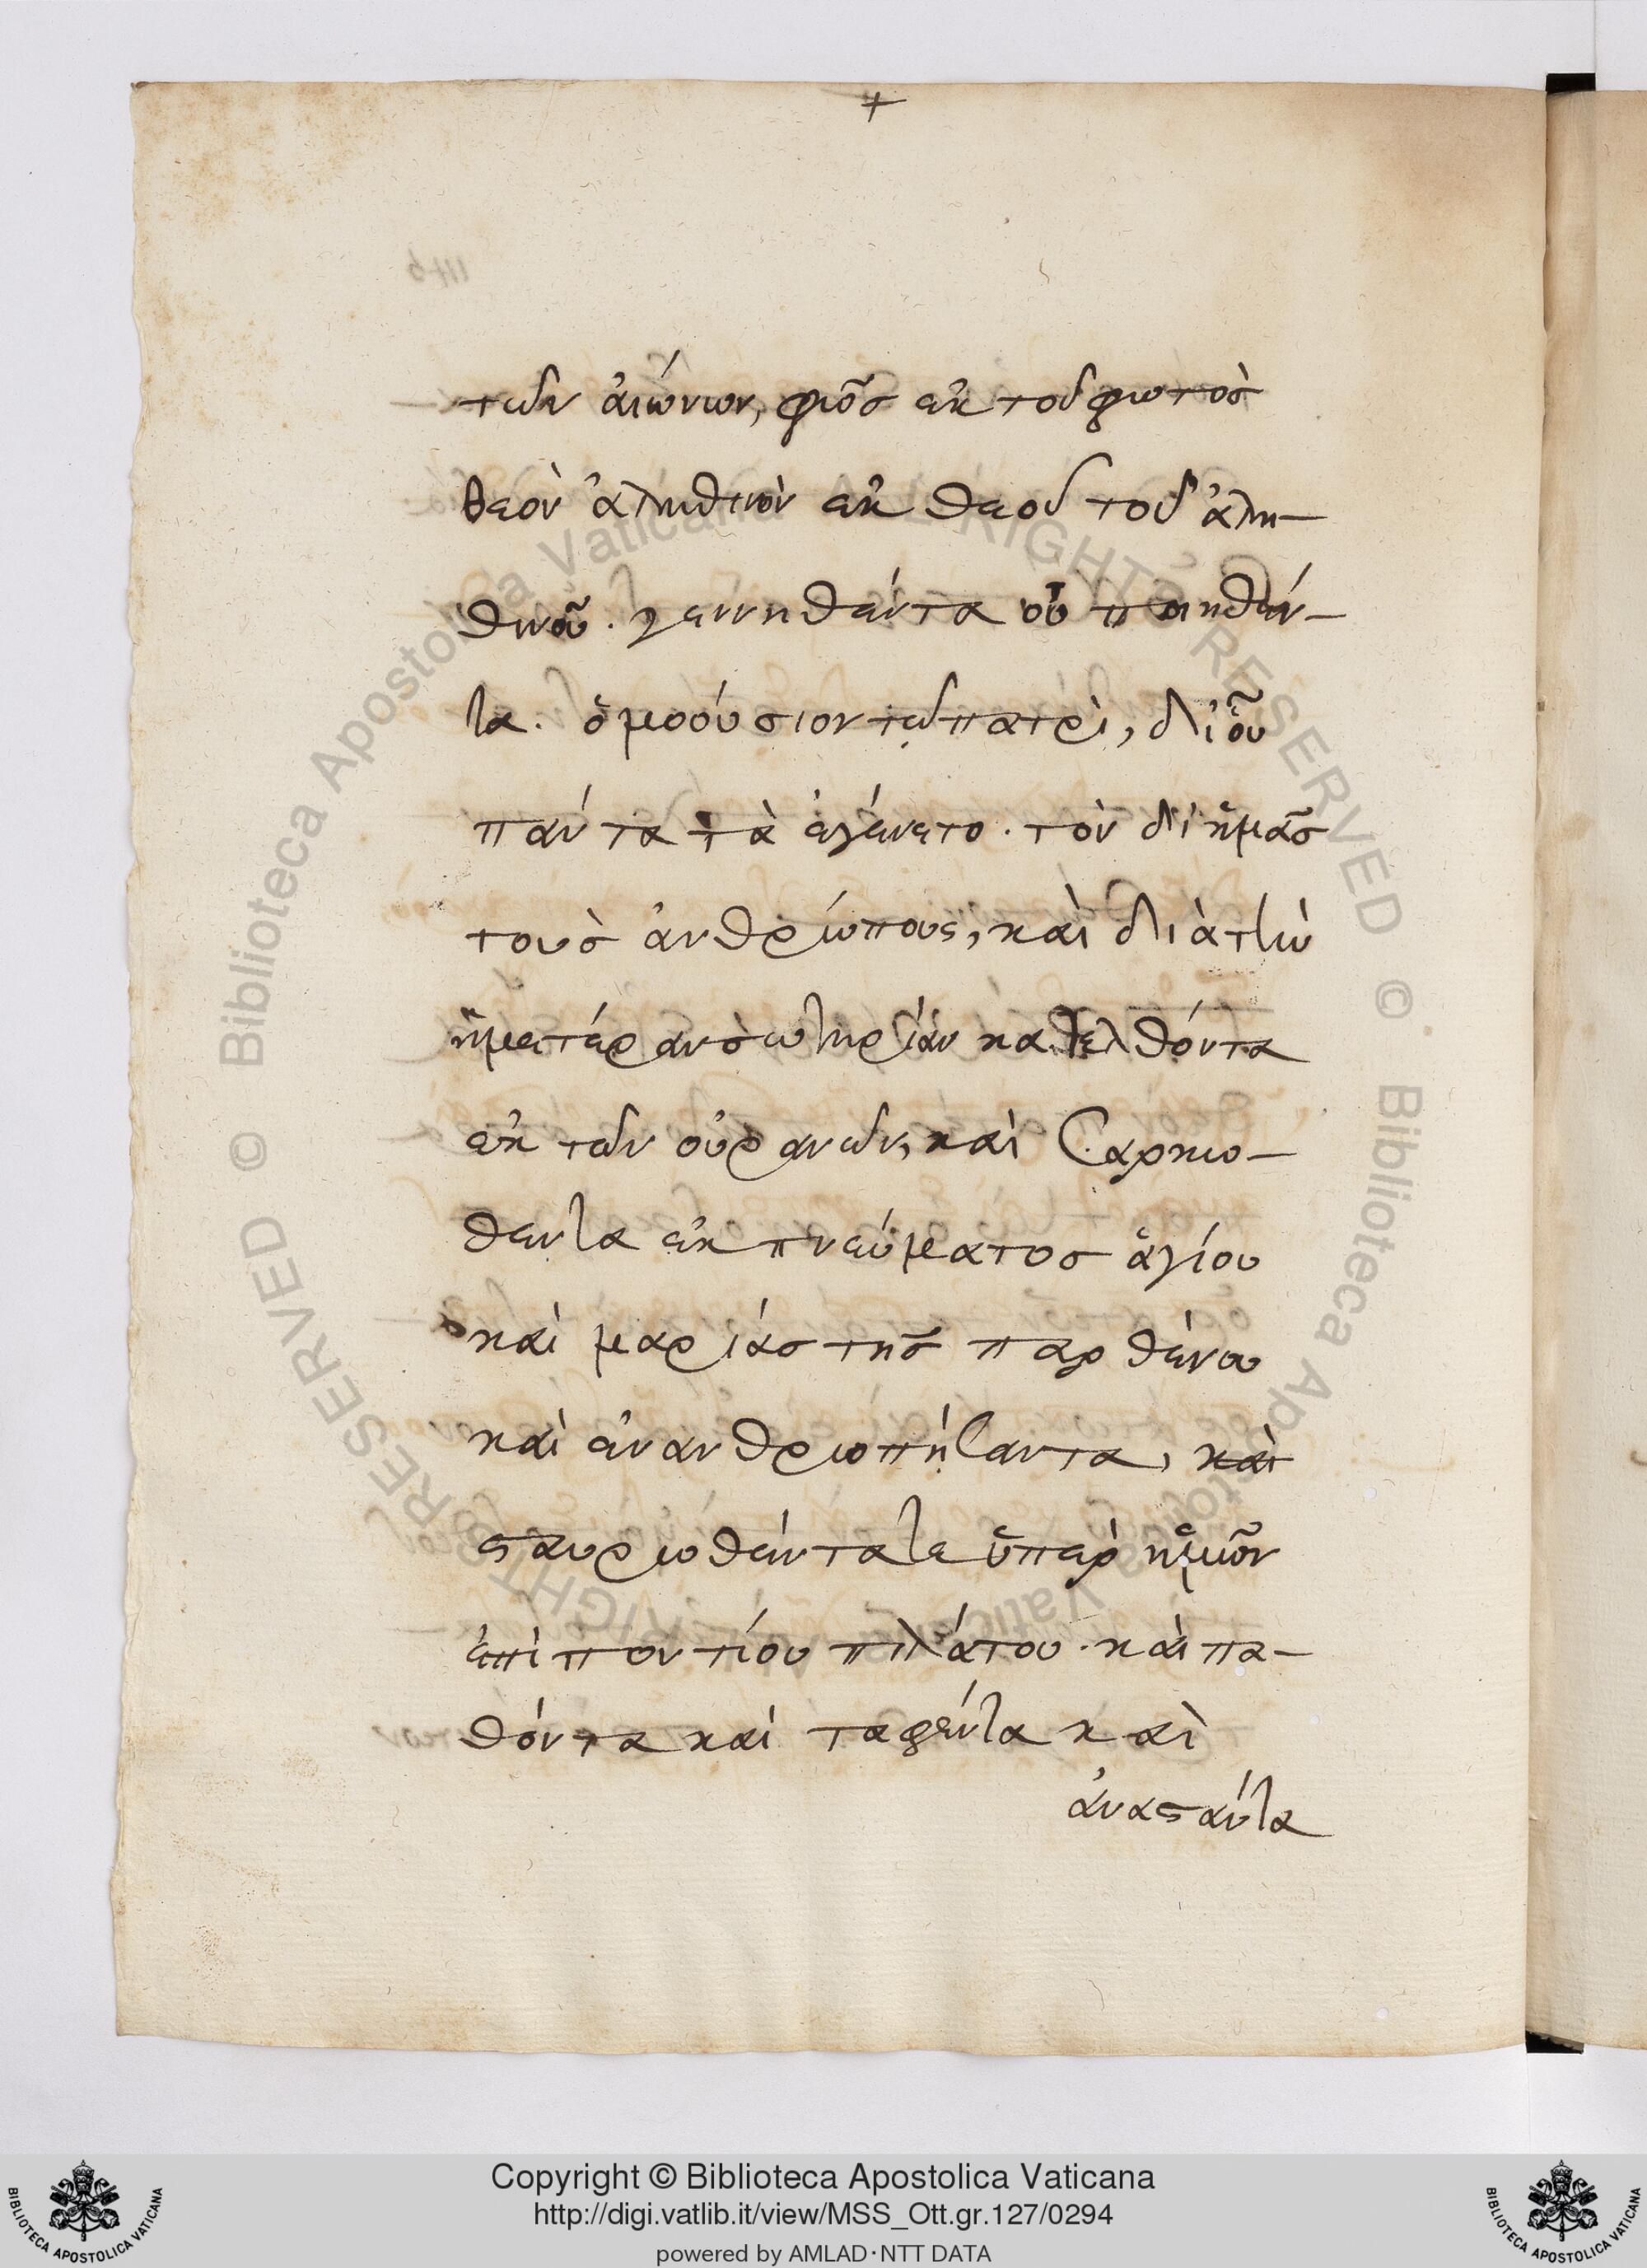 +
τῶν ἀιώνων, φῶς ἐκ τοῦ φωτὸς
θεὸν ἀληθινὸν ἐκ θεοῦ τοῦ ἀλη-
θινοῦ. γεννηθέντα οὐ ποιηθέν-
τα. ὁμοούσιον τῷ πατρὶ, δι᾽ οὗ
πάντα τὰ ἐγένετο. τὸν δι᾽ ἡμᾶς
τοὺς ἀνθρώπους, καὶ διὰ τὴν
ἡμετέραν σωτηρίαν κατελθόντα
ἐκ τῶν οὐρανῶν, καὶ σαρκω-
θεντα ἐκ πνεύματος ἁγίου
καὶ μαρίας τῆς παρθένου
καὶ ἐνανθρωπήσαντα, καὶ
σταυρωθέντα τε ὑπὲρ ἡμῶν
ἐπὶ ποντίου πιλάτου. καὶ πα-
θόντα καὶ ταφέντα καὶ
ἀναστάντα
Biblioteca Apostolica Vaticana ALL RIGHTS RESERVED © Biblioteca Apostolica Vaticana ALL RIGHTS RESERVED ©
Copyright © Biblioteca Apostolica Vaticana
http://digi.vatlib.it/view/MSS_Ott.gr.127/0294
powered by AMLAD·NTT DATA
BIBLIOTECA APOSTOLICA VATICANA
BIBLIOTECA APOSTOLICA VATICANA